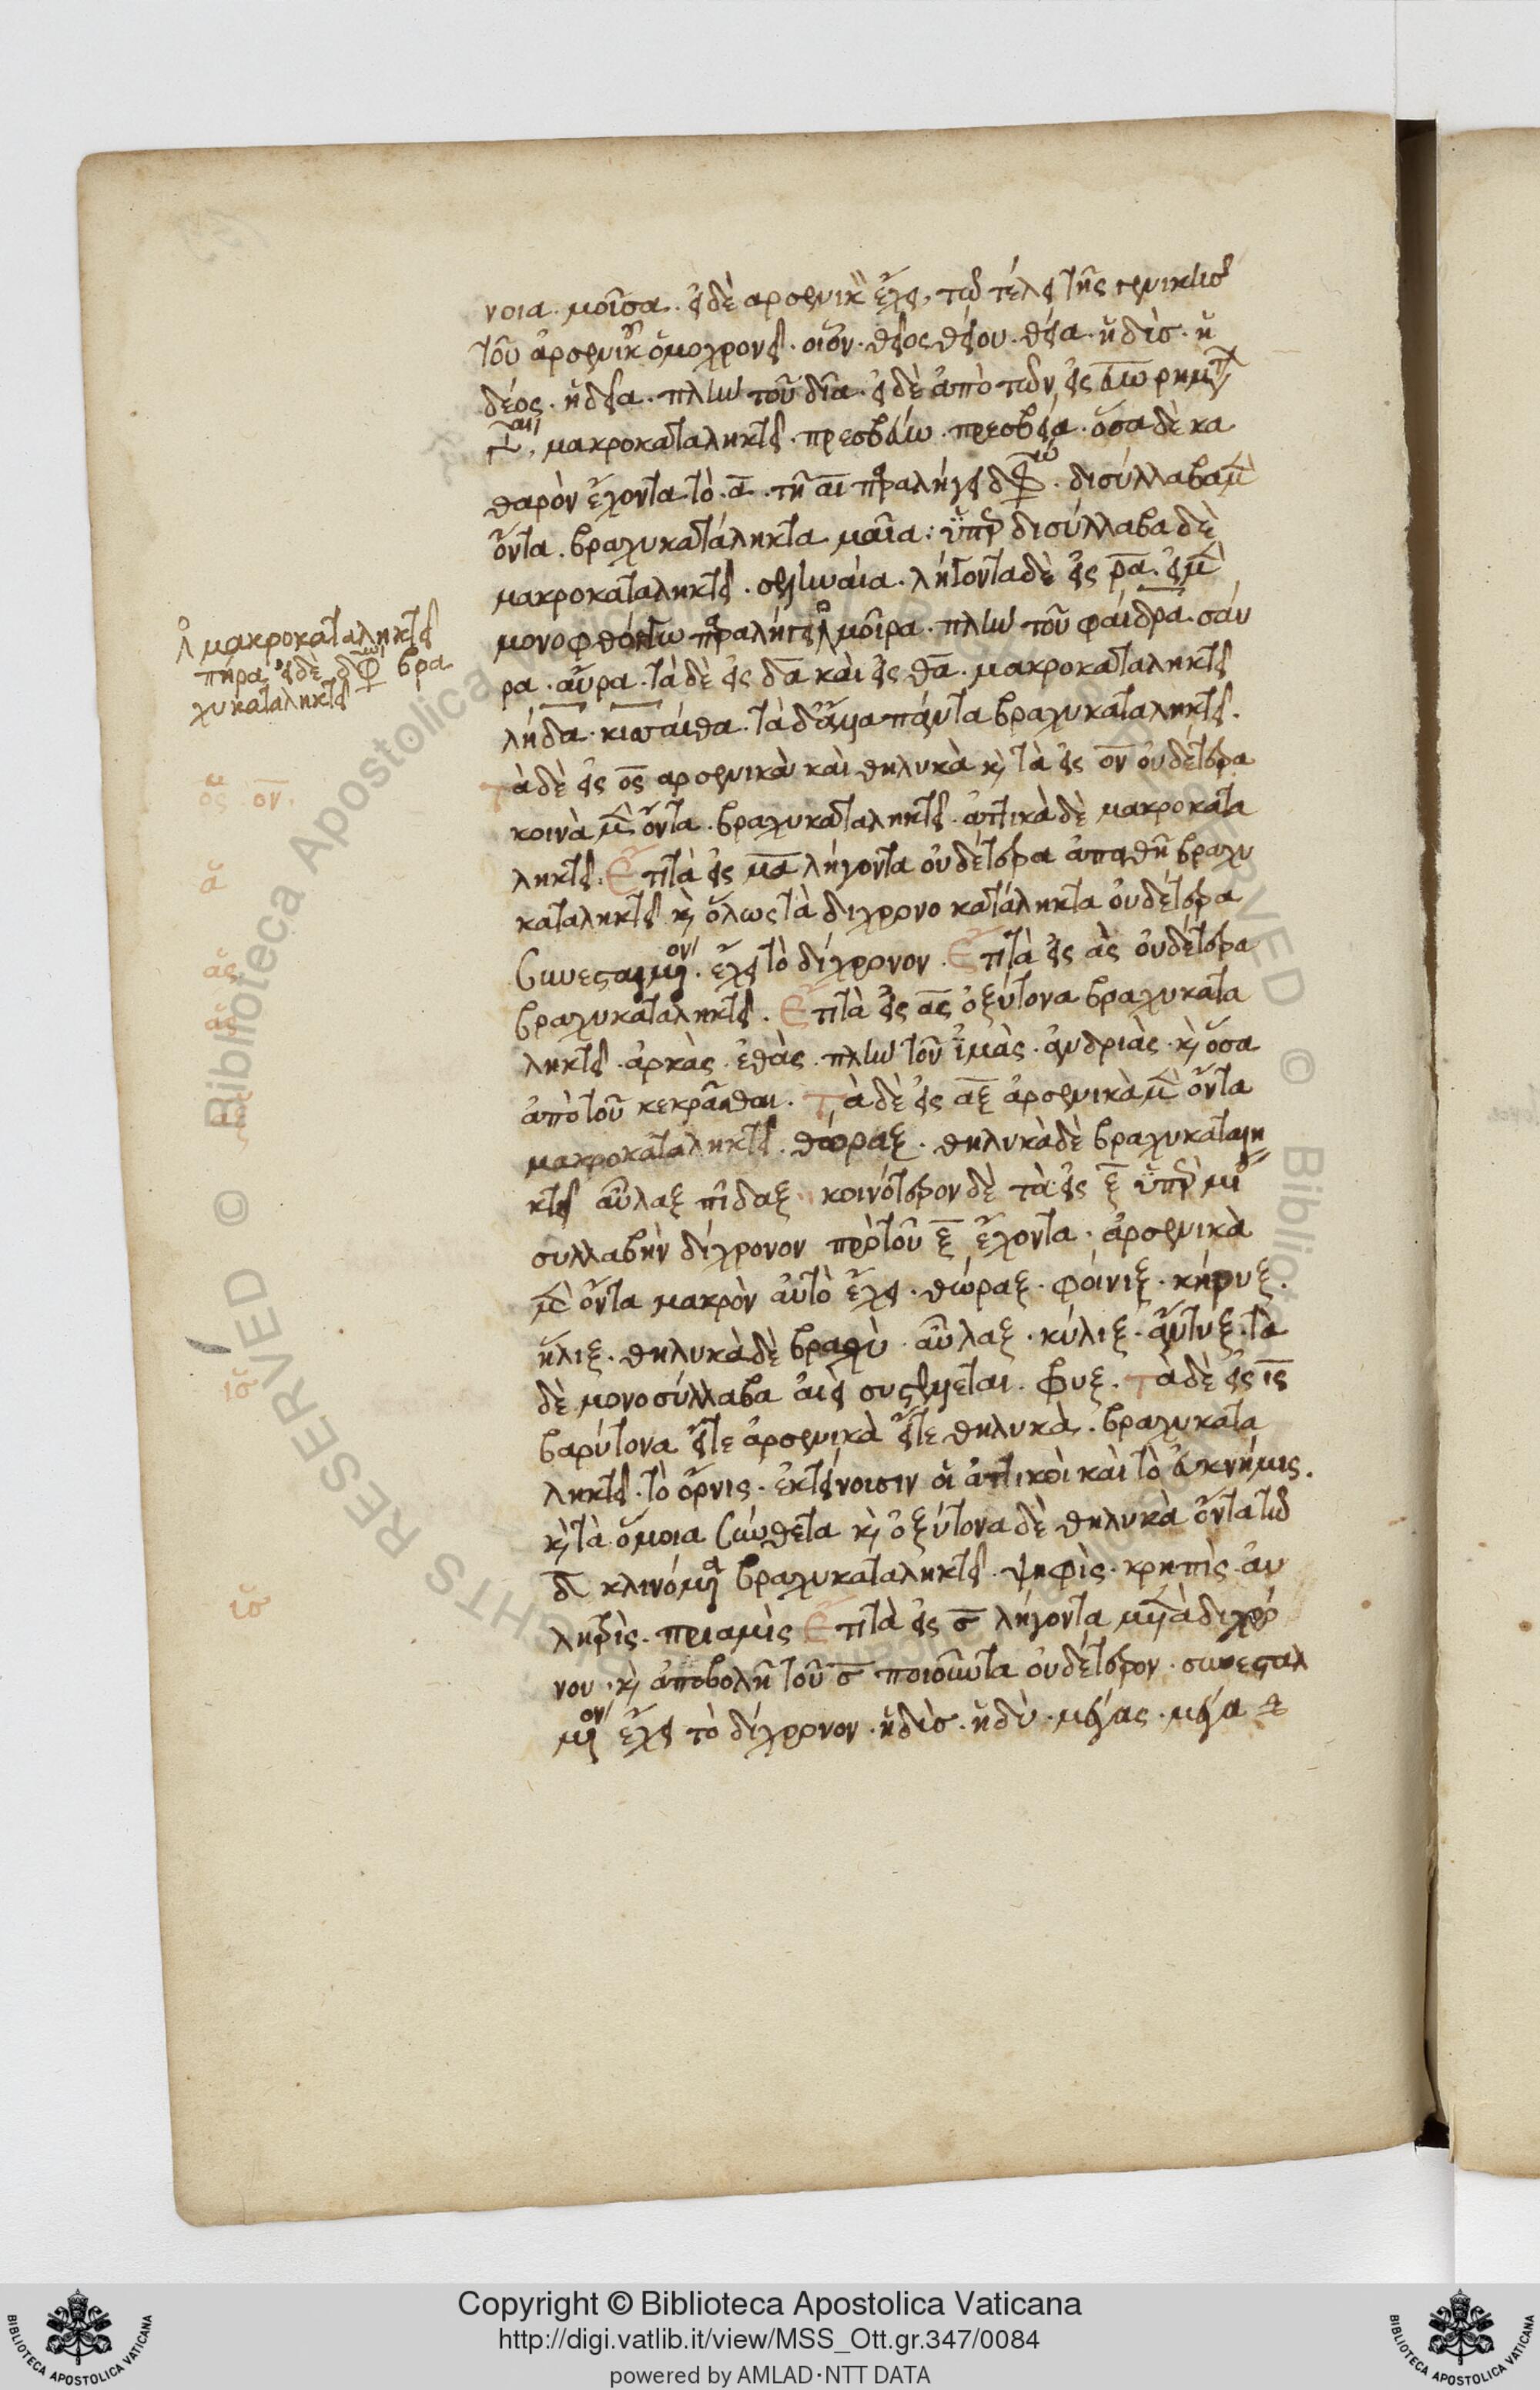 νοια. μοῦσα. εἰ δὲ ἀρσενικὸν ἔχει, τῷ τέλει τῆς γενικῆς
τοῦ ἀρσενικοῦ ὁμοχρονεῖ. οἷον. θεῖος θείου. θεία. ἡδὺς. ἡ
δέος. ἡδεῖα. πλὴν τοῦ δῖα. εἰ δὲ ἀπὸ τῶν εἰς εύω ῥημάτων
μακροκαταληκτεῖ. πρεσβεύω. πρεσβεία. ὅσα δὲ κα
θαρὸν ἔχοντα τὸ. α. τῇ αι παραλήγει διφθόγγω. δισύλλαβα μὲν
ὄντα. βραχυκατάληκτα μαῖα: ὑπὲρ δισύλλαβα δὲ
μακροκαταληκτεῖ. σεληναία. λήγοντα δὲ εἰς ρα. εἰ μὲν
μονοφθόγγω παραλήγει μοῖρα. πλὴν τοῦ φαίδρα. σαύ
ρα. αὔρα. τὰ δὲ εἰς δα καὶ εἰς θα. μακροκαταληκτεῖ
λήδα. κισσαίθα. τὰ δ' ἄλλα πάντα βραχυκαταληκτεῖ.
Τὰ δὲ εἰς ος ἀρσενικὰ καὶ θηλυκὰ καὶ τὰ εἰς ον οὐδέτερα
κοινὰ μὲν ὄντα. βραχυκαταληκτεῖ. ἀττικὰ δὲ μακροκατα
ληκτεῖ. Ἔτι τὰ εἰς μα λήγοντα οὐδέτερα ἀπαθῆ βραχυ
καταληκτεῖ καὶ ὅλως τὰ διχρονοκατάληκτα οὐδέτερα
συνεσταλμένον. ἔχει τὸ δίχρονον. Ἔτι τὰ εἰς ας οὐδέτερα
βραχυκαταληκτεῖ. Ἔτι τὰ εἰς ας ὀξύτονα βραχυκατα
ληκτεῖ. ἀρκὰς. πλὴν τοῦ ἱμὰς. ἀνδριὰς. καὶ ὅσα
ἀπὸ τοῦ κεκρᾶσθαι. Τὰ δὲ εἰς αξ ἀρσενικὰ μὲν ὄντα
μακροκαταληκτεῖ. θώραξ. θηλυκὰ δὲ βραχυκαταλη
κτεῖ αὖλαξ πῖδαξ κοινότερον δὲ τὰ εἰς ξ ὑπὲρ μίαν
συλλαβὴν δίχρονον πρὸ τοῦ ξ ἔχοντα. ἀρσενικὰ
μὲν ὄντα μακρὸν αὐτὸ ἔχει. θώραξ. φοίνιξ. κήρυξ.
ἧλιξ. θηλυκὰ δὲ βραχὺ. αὖλαξ. κύλιξ. ἄντυξ. τὰ
δὲ μονοσύλλαβα ἀεὶ συστέλλεται. Φρυξ. Τὰ δὲ εἰς ις
βαρύτονα εἴτε ἀρσενικὰ εἴτε θηλυκὰ. βραχυκατα
ληκτεῖ. τὸ ὄρνις. ἐκτείνουσιν οἱ ἀττικοὶ καὶ τὸ εὐκνήμις.
καὶ τὰ ὅμοια σύνθετα καὶ ὀξύτονα δὲ θηλυκὰ ὄντα τῷ
δ κλινόμενα βραχυκαταληκτεῖ. ψηφὶς. κρηπὶς.
πριαμὶς Ἔτι τὰ εἰς ς λήγοντα μετὰ διχρό
νου. καὶ ἀποβολῇ τοῦ ς ποιοῦντα οὐδέτερον. συνεσταλ
μένον ἔχει τὸ δίχρονον. ἡδὺς. ἡδύ. μέγας. μέγα
μακροκαταληκτεῖ
πήρα. εἰ δὲ διφθόγγω βρα
χυκαταληκτεῖ
ος. ον.
α
ας
ας
ις
ις
Copyright © Biblioteca Apostolica Vaticana
http://digi.vatlib.it/view/MSS_Ott.gr.347/0084
powered by AMLAD·NTT DATA